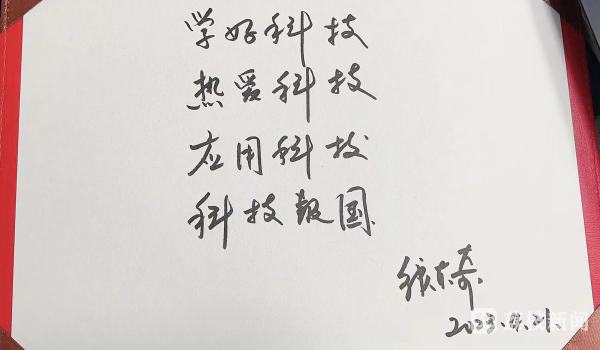 学好科技
热爱科技
应用科技
科技報国
张东奇
2023.4.21.